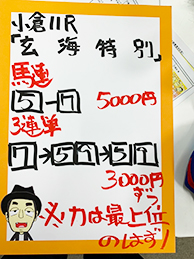 小倉11R
「玄海特別」
馬連
5-7 5000円
3連単
7→5 1→5 1
3000円
ずつ
火力は最上位
のはず!